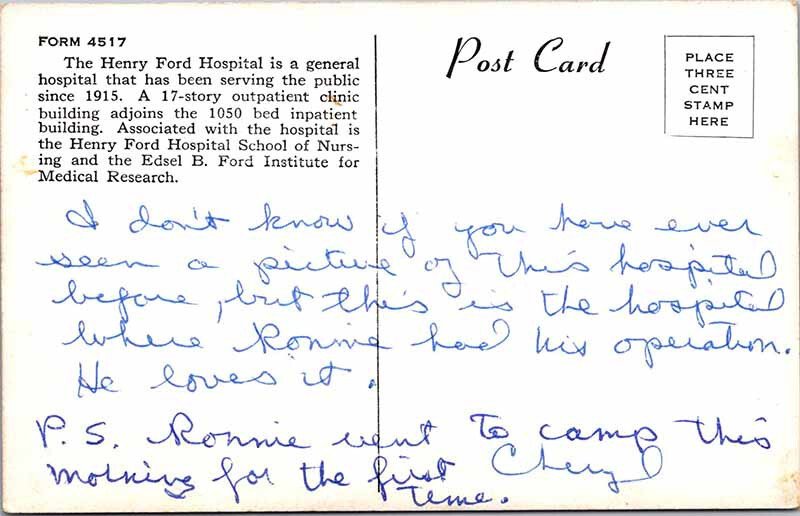 FORM 4517
The Henry Ford Hospital is a general
hospital that has been serving the public
since 1915. A 17-story outpatient clinic
building adjoins the 1050 bed inpatient
building. Associated with the hospital is
the Henry Ford Hospital School of Nurs-
ing and the Edsel B. Ford Institute for
Medical Research.
Post Card
PLACE
THREE
CENT
STAMP
HERE
I don't know if you have ever
seen a picture of this hospital
before, but this is the hospital
where Ronnie had his operation.
He loves it.
P.S. Ronnie went to camp this
morning for the first
time.
Cheryl